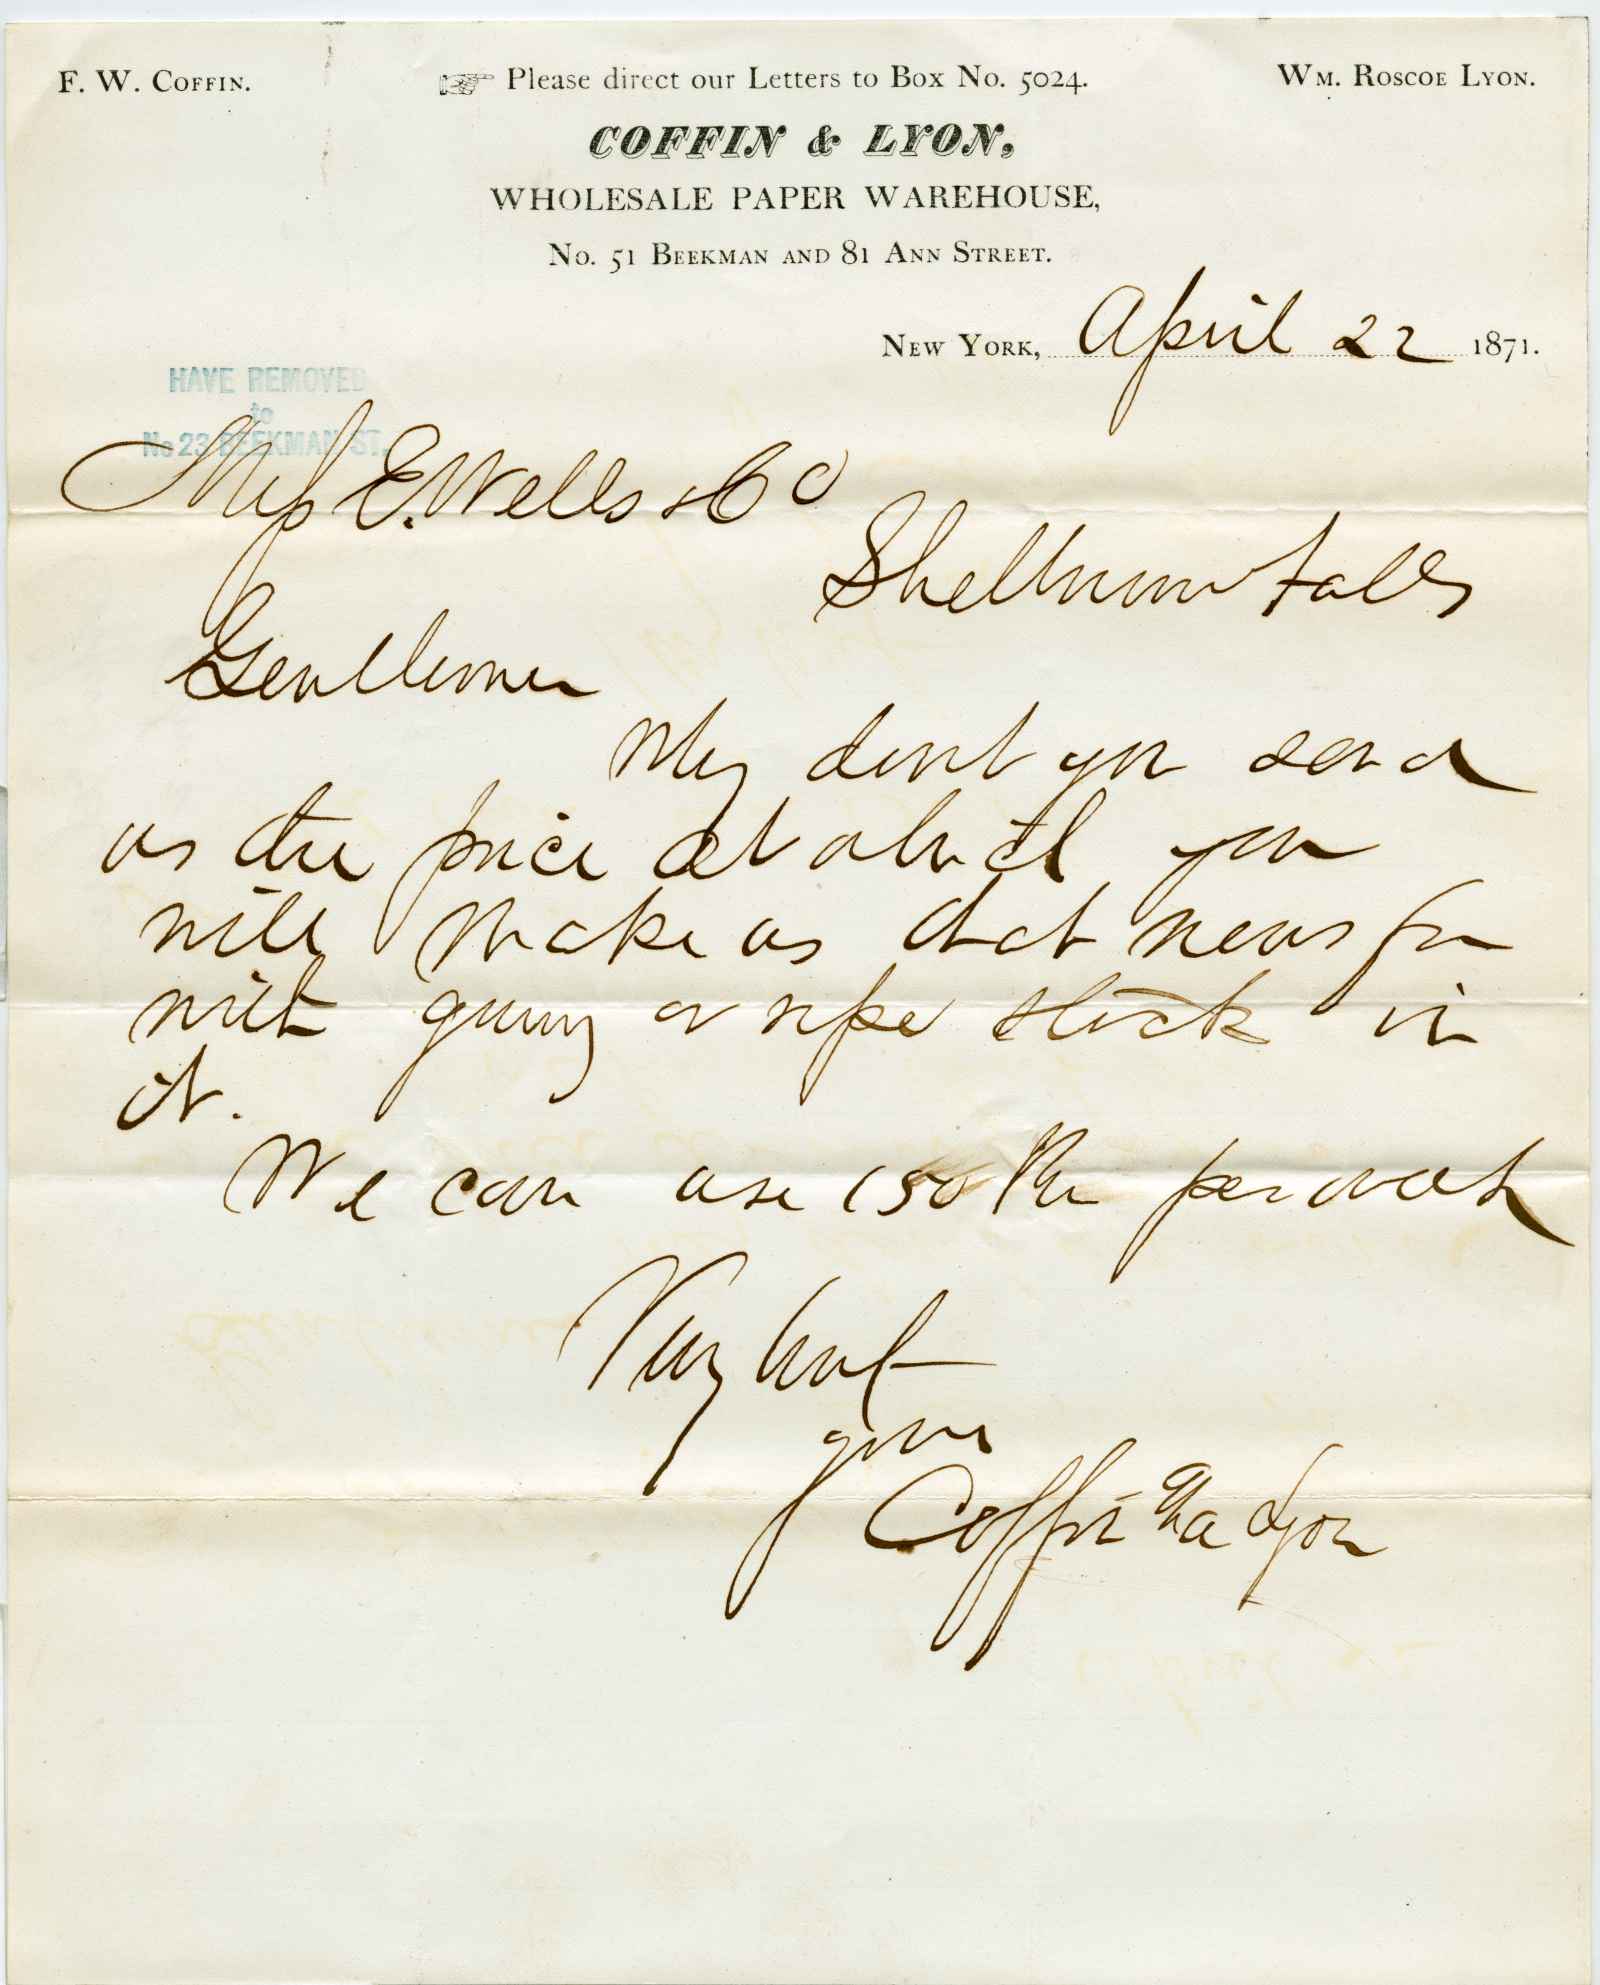 F. W. COFFIN.
Please direct our Letters to Box No. 5024.
WM. ROSCOE LYON.
COFFIN & LYON,
WHOLESALE PAPER WAREHOUSE,
No. 51 BEEKMAN AND 81 ANN STREET.
NEW YORK, April 22 1871.
HAVE REMOVED
to
No 23 BEEKMAN ST.
Mess E. Wells & Co
Shelburne Falls
Gentlemen
Why dont you send
us the price at which you
will make us that news for
with guny or rope stock in
it.
We can use 150 Rm per week
Very truly
yours
Coffin & Lyon